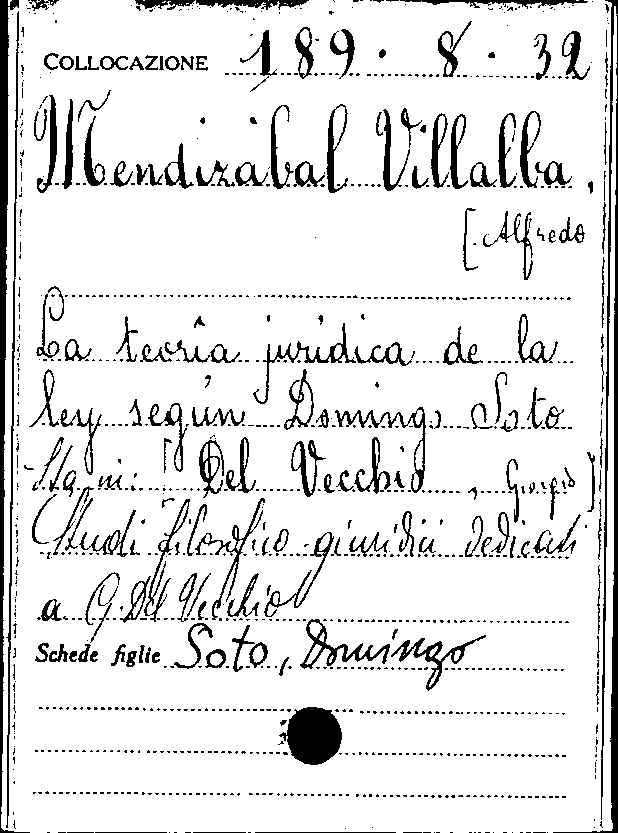 COLLOCAZIONE 189 · 8 · 32
Mendizábal Villalba,
[Alfredo
La teoría jurídica de la
ley según Domingo Soto
Sta in: [Del Vecchio, Giorgio]
Studi filosofico-giuridici dedicati
a G. Del Vecchio
Schede figlie Soto, Domingo